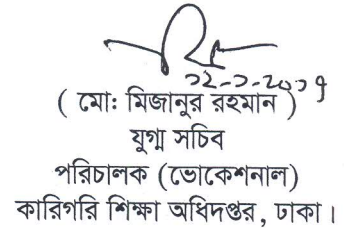 ১২-১-২০১৭
( মো: মিজানুর রহমান )
যুগ্ম সচিব
পরিচালক (ভোকেশনাল)
কারিগরি শিক্ষা অধিদপ্তর, ঢাকা।